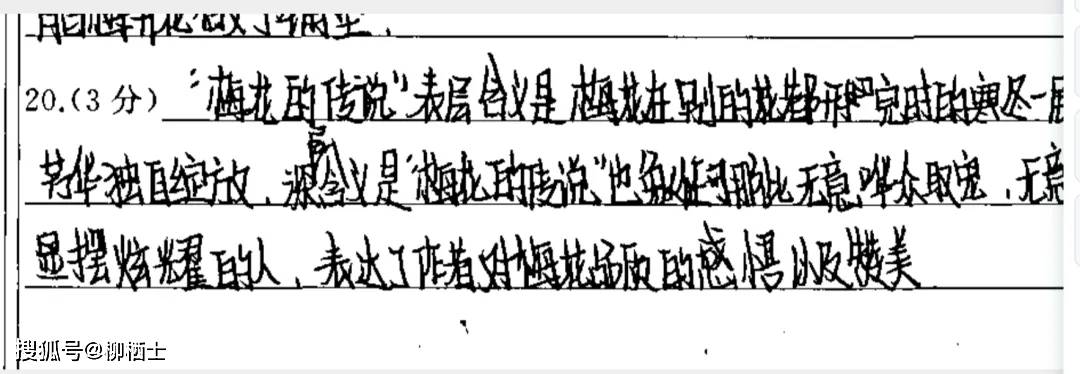 20.(3分) “梅花的传说”表层含义是梅花在别的花都开完时的寒冬一展
芳华独自绽放，深层含义是“梅花的传说”也象征那些无意哗众取宠，无意
显摆炫耀的人，表达了作者对梅花品质的感悟以及赞美
搜狐号@柳栖士